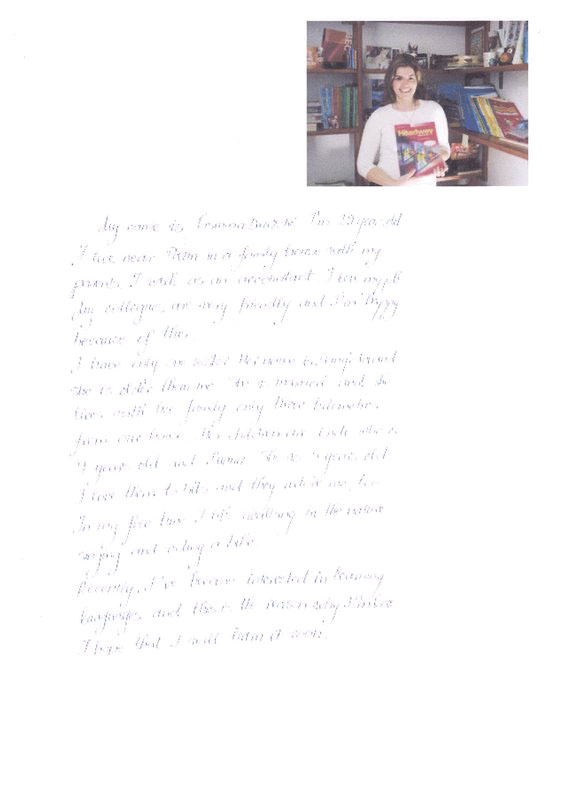 Headway
My name is I'm 29 years old
I live near in a family house with my
parents. I work as an accountant. I love my job
My collegues are very friendly and I'm happy
because of this.
I have only one sister Her name is
She is older than me She is married and she
lives with her family only three kilometres
from our house. Her children are who is
years old and She is years old
I love them to bits and they adore me, too
In my free time I like walking in the nature
and riding a bike
Recently, I've become interested in learning
languages and this is the reason why I'm here
I hope that I will learn it soon.